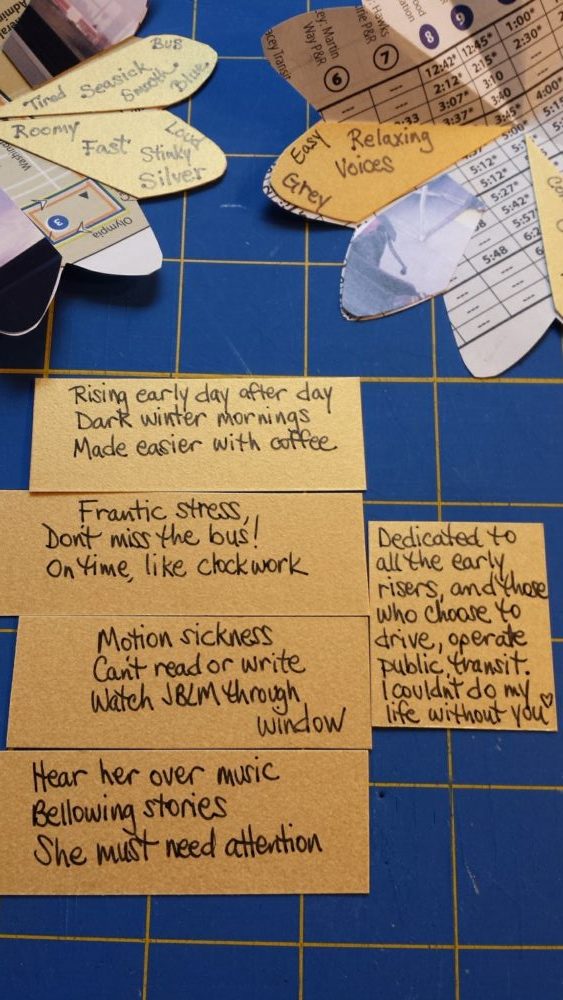 Bus
Tired Seasick Smooth Blue
Roomy Fast Loud
Stinky
Silver
Washing
Olympia
3
Martin
Way P&R
Hawks
P&R
6
7
8
9
12:42* 12:45* 1:00*
2:12* 2:15* 2:30*
3:07* 3:10
3:37* 3:40
3:45* 4:00*
5:00*
5:12*
5:12*
5:27*
5:42*
5:48
Easy Relaxing
Voices
Grey
Rising early day after day
Dark winter mornings
Made easier with coffee
Frantic stress,
Don't miss the bus!
On time, like clockwork
Motion sickness
Can't read or write
Watch JBLM through
window
Hear her over music
Bellowing stories
She must need attention
Dedicated to
all the early
risers, and those
who choose to
drive, operate
public transit.
I couldn't do my
life without you♡